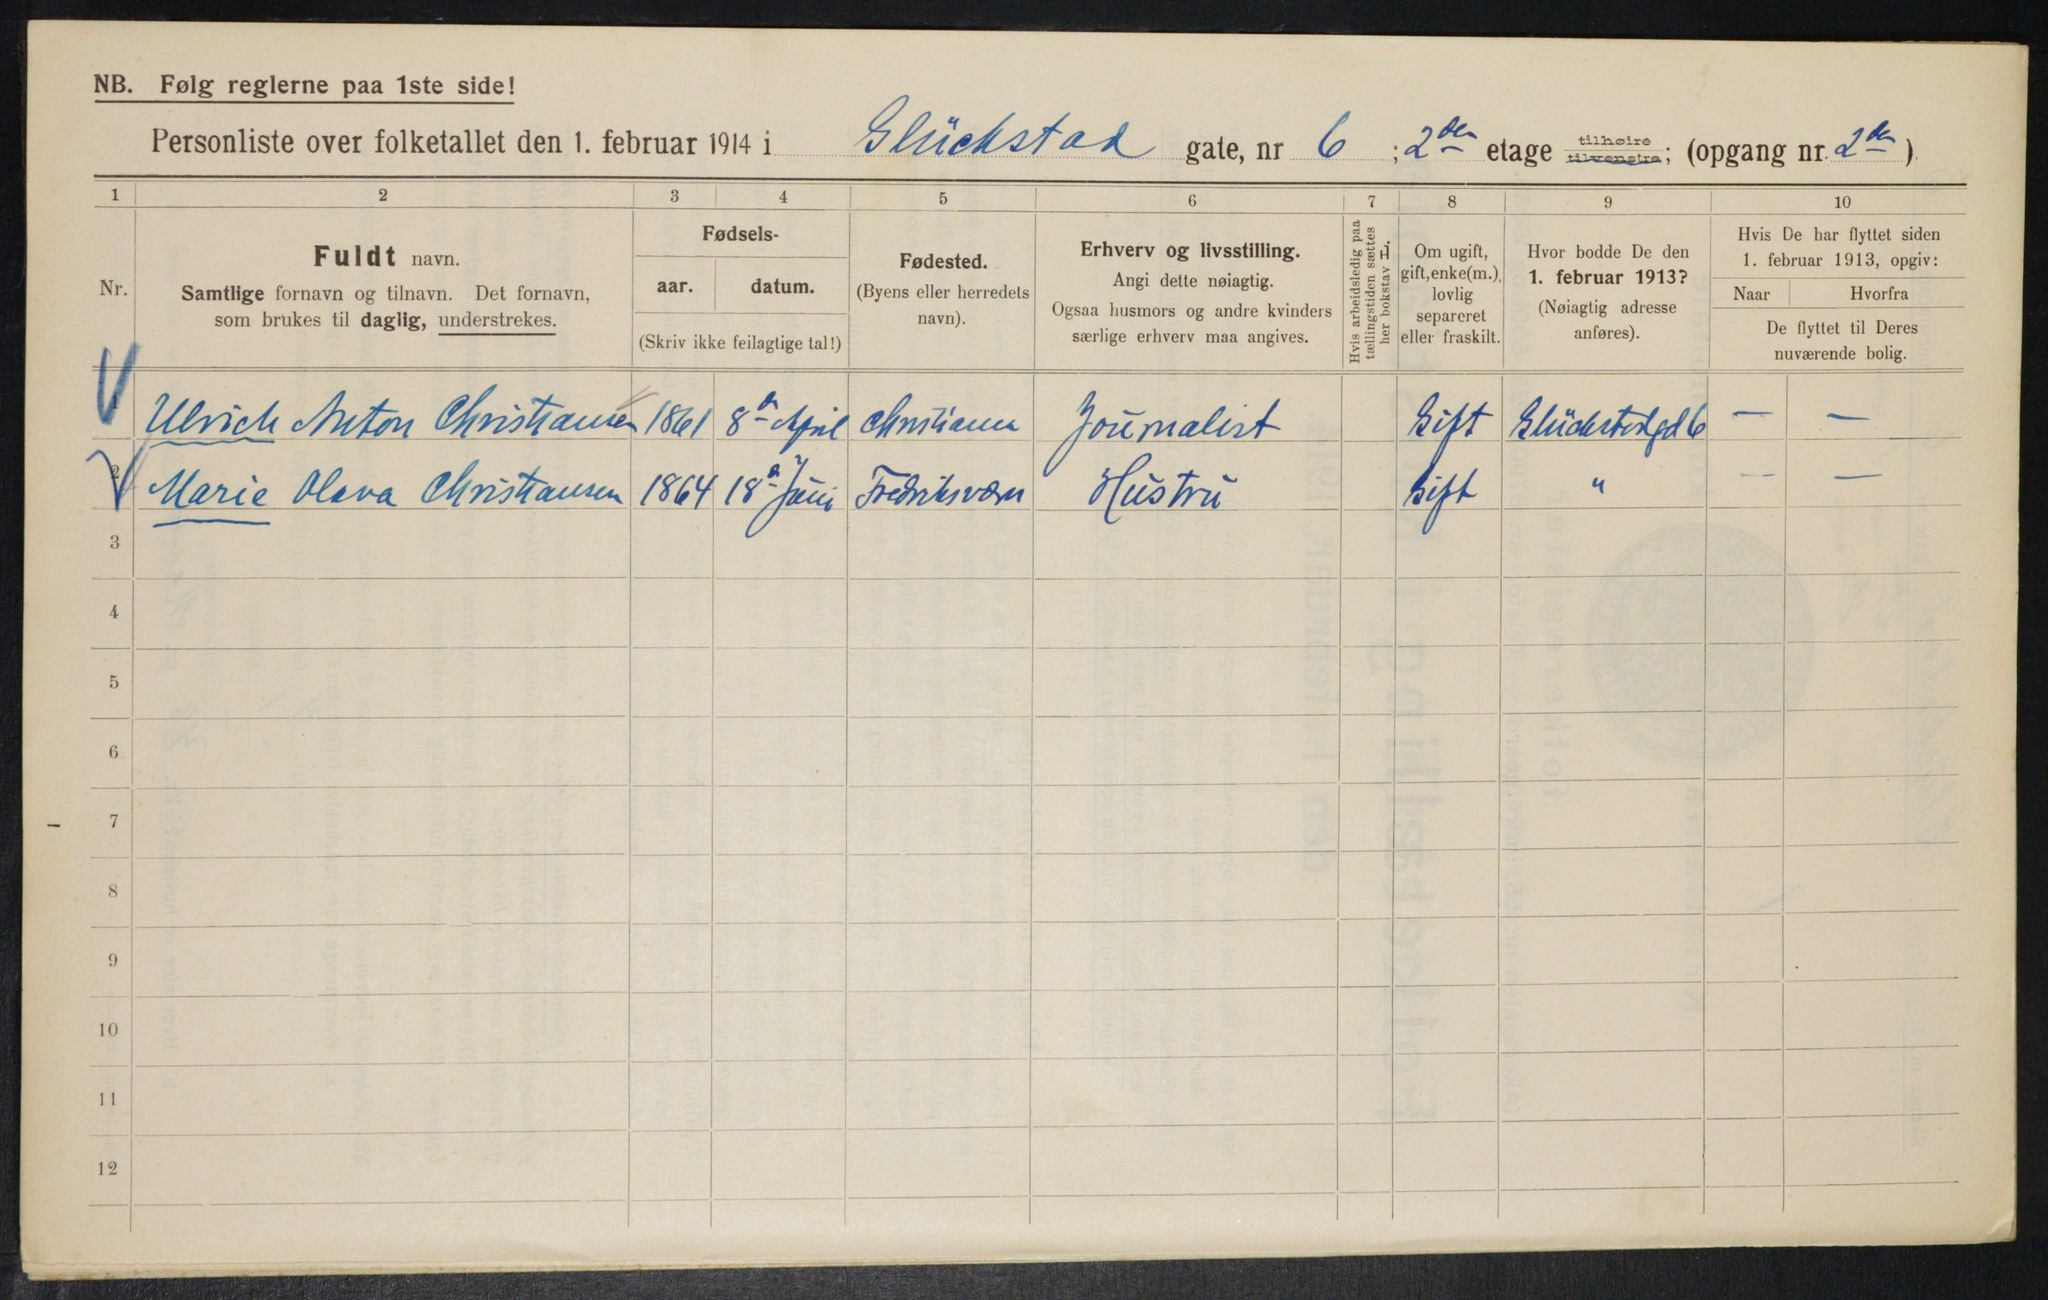 NB. Følg reglerne paa 1ste side!
Personliste over folketallet den 1. februar 1914 i Glückstad gate, nr 6 ; 2den etage tilhøire tilvenstre; (opgang nr. 2den)
1 2 3 4 5 6 7 8 9 10
Nr.
Fuldt navn.
Samtlige fornavn og tilnavn. Det fornavn,
som brukes til daglig, understrekes.
Fødsels-
aar. datum.
(Skriv ikke feilagtige tal!)
Fødested.
(Byens eller herredets
navn).
Erhverv og livsstilling.
Angi dette nøiagtig.
Ogsaa husmors og andre kvinders
særlige erhverv maa angives.
Hvis arbeidsledig paa
tællingstiden sættes
her bokstav L.
Om ugift,
gift, enke(m.),
lovlig
separeret
eller fraskilt.
Hvor bodde De den
1. februar 1913?
(Nøiagtig adresse
anføres).
Hvis De har flyttet siden
1. februar 1913, opgiv:
Naar Hvorfra
De flyttet til Deres
nuværende bolig.
1 Ulrich Anton Christiansen 1861 8de April Christiania Journalist Gift Glückstadgd 6 — —
2 Marie Olava Christiansen 1864 18de Juni Fredriksværn Hustru Gift " — —
3
4
5
6
7
8
9
10
11
12